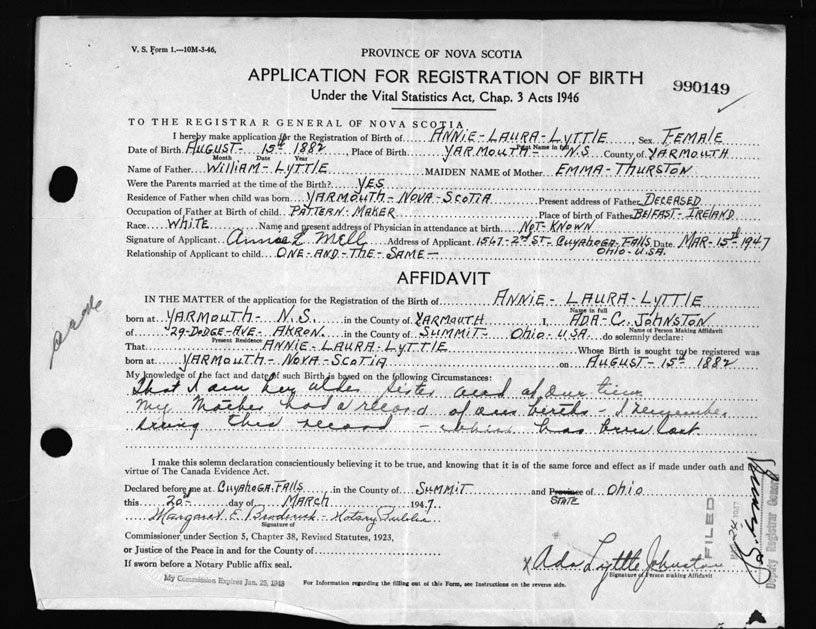 V. S. Form 1.—10M-3-46.
PROVINCE OF NOVA SCOTIA
APPLICATION FOR REGISTRATION OF BIRTH
990149
Under the Vital Statistics Act, Chap. 3 Acts 1946
TO THE REGISTRAR GENERAL OF NOVA SCOTIA
I hereby make application for the Registration of Birth of ANNIE-LAURA-LYTTLE, Sex FEMALE
Print Name in full
Date of Birth AUGUST- 15th 1882, Place of Birth YARMOUTH- N.S County of YARMOUTH
Month Date Year
Name of Father WILLIAM-LYTTLE MAIDEN NAME of Mother EMMA-THURSTON
Were the Parents married at the time of the Birth? YES
Residence of Father when child was born YARMOUTH-NOVA-SCOTIA Present address of Father DECEASED
Occupation of Father at Birth of child PATTERN-MAKER Place of birth of Father BELFAST-IRELAND
Race WHITE Name and present address of Physician in attendance at birth NOT-KNOWN
Signature of Applicant Annie L Mell Address of Applicant 1547-2nd ST-Cuyahoga-Falls, Date MAR-15th-1947
OHIO-U.S.A.
Relationship of Applicant to child ONE-AND-THE-SAME-
AFFIDAVIT
IN THE MATTER of the application for the Registration of the Birth of ANNIE-LAURA-LYTTLE
Name in full
born at YARMOUTH-N.S. in the County of YARMOUTH I, ADA-C. JOHNSTON
Name of Person Making Affidavit
of 29-DODGE-AVE-AKRON in the County of SUMMIT- OHIO-USA do solemnly declare:
Present Residence
That ANNIE-LAURA-LYTTLE Whose Birth is sought to be registered was
born at YARMOUTH-NOVA-SCOTIA on AUGUST-15th 1882
My knowledge of the fact and date of such Birth is based on the following Circumstances:
That I am her sister and at
My Mother had a record of our births - I remember
seeing this record - which has been lost
I make this solemn declaration conscientiously believing it to be true, and knowing that it is of the same force and effect as if made under oath and by
virtue of The Canada Evidence Act.
Declared before me at CUYAHOGA-FALLS in the County of SUMMIT and Province of OHIO
STATE
this 20th day of MARCH 1947
Margaret E. Broderick - Notary Public
Signature of
Commissioner under Section 5, Chapter 38, Revised Statutes, 1923,
or Justice of the Peace in and for the County of
If sworn before a Notary Public affix seal.
x Ada Lyttle Johnston
Signature of Person making Affidavit
My Commission Expires Jan. 25, 1948
For Information regarding the filling out of this Form, see Instructions on the reverse side.
FILED
Deputy Registrar General